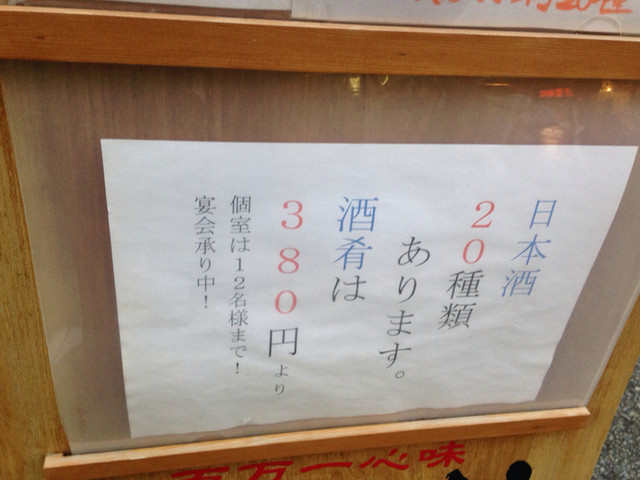 日本酒
20種類
あります。
酒肴は
380円より
個室は12名様まで!
宴会承り中!
一心味